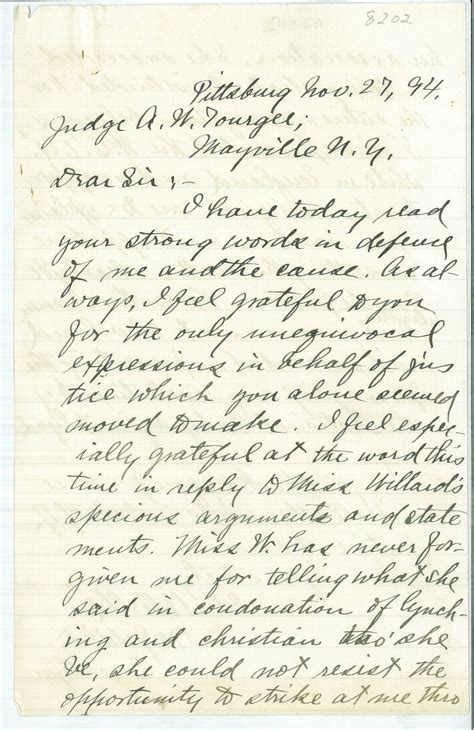 8202
Pittsburg Nov. 27, 94.
Judge A. W. Tourgee;
Mayville N. Y.
Dear Sir:-
I have today read
your strong words in defence
of me and the cause. As al
ways, I feel grateful to you
for the only unequivocal
expressions in behalf of jus
tice which you alone seemed
moved to make. I feel espec-
ially grateful at the word this
time in reply to Miss Willard's
specious arguments and state
ments. Miss W. has never for-
given me for telling what she
said in condonation of lynch-
ing and christian tho' she
be, she could not resist the
opportunity to strike at me thro